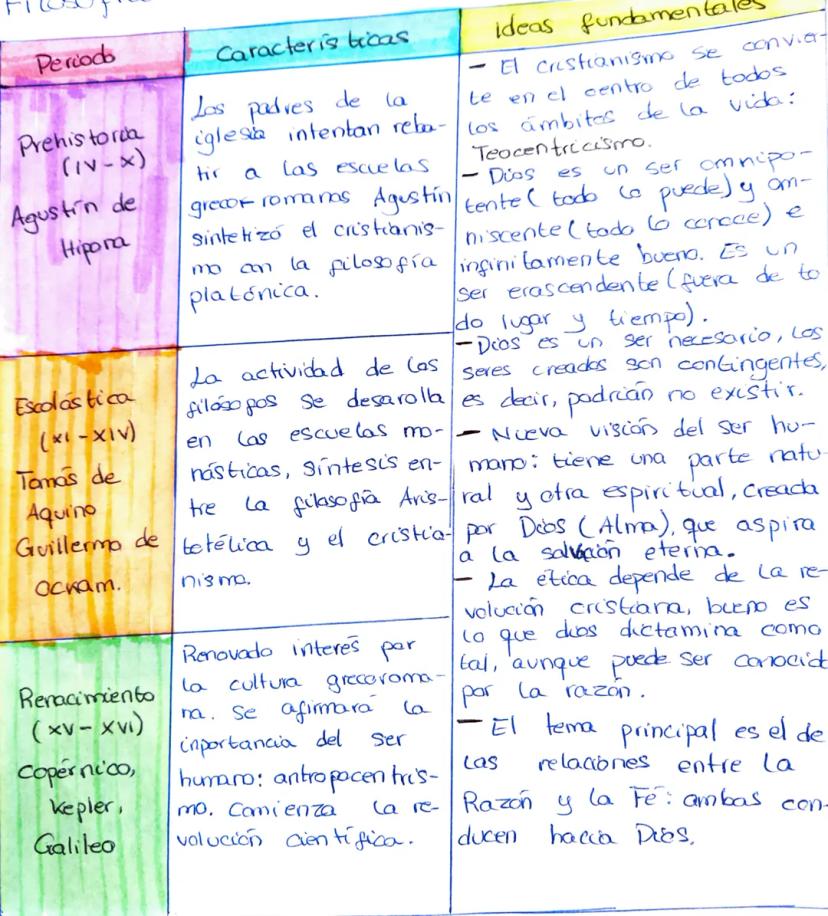 Filosofía
Periodo
Características
ideas fundamentales
Prehistoria
(IV-X)
Agustín de
Hipona
Los padres de la
iglesia intentan reba-
tir a las escuelas
grecorromanas Agustín
sintetizó el cristianis-
mo con la filosofía
platónica.
- El cristianismo se convier-
te en el centro de todos
los ámbitos de la vida:
Teocentricismo.
- Dios es un ser omnipo-
tente (todo lo puede) y om-
niscente (todo lo conoce) e
infinitamente bueno. Es un
ser erascendente (fuera de to
do lugar y tiempo).
- Dios es un ser necesario, los
seres creados son contingentes,
es decir, podrían no existir.
- Nueva visión del ser hu-
mano: tiene una parte natu-
ral y otra espiritual, creada
por Dios (Alma), que aspira
a la salvación eterna.
- La ética depende de la re-
volución cristiana, bueno es
lo que dios dictamina como
tal, aunque puede ser conocid
por la razón.
- El tema principal es el de
las relaciones entre la
Razón y la Fé: ambas con-
ducen hacia Dios.
Escolástica
(XI-XIV)
Tomás de
Aquino
Guillermo de
Ockam.
La actividad de los
filósofos se desarolla
en las escuelas mo-
násticas, síntesis en-
tre la filosofía Aris-
totélica y el cristia-
nismo.
Renacimiento
(XV-XVI)
Copérnico,
Kepler,
Galileo
Renovado interés por
la cultura grecoroma-
na. Se afirmará la
inportancia del ser
humano: antropocentris-
mo. Comienza la re-
volución científica.